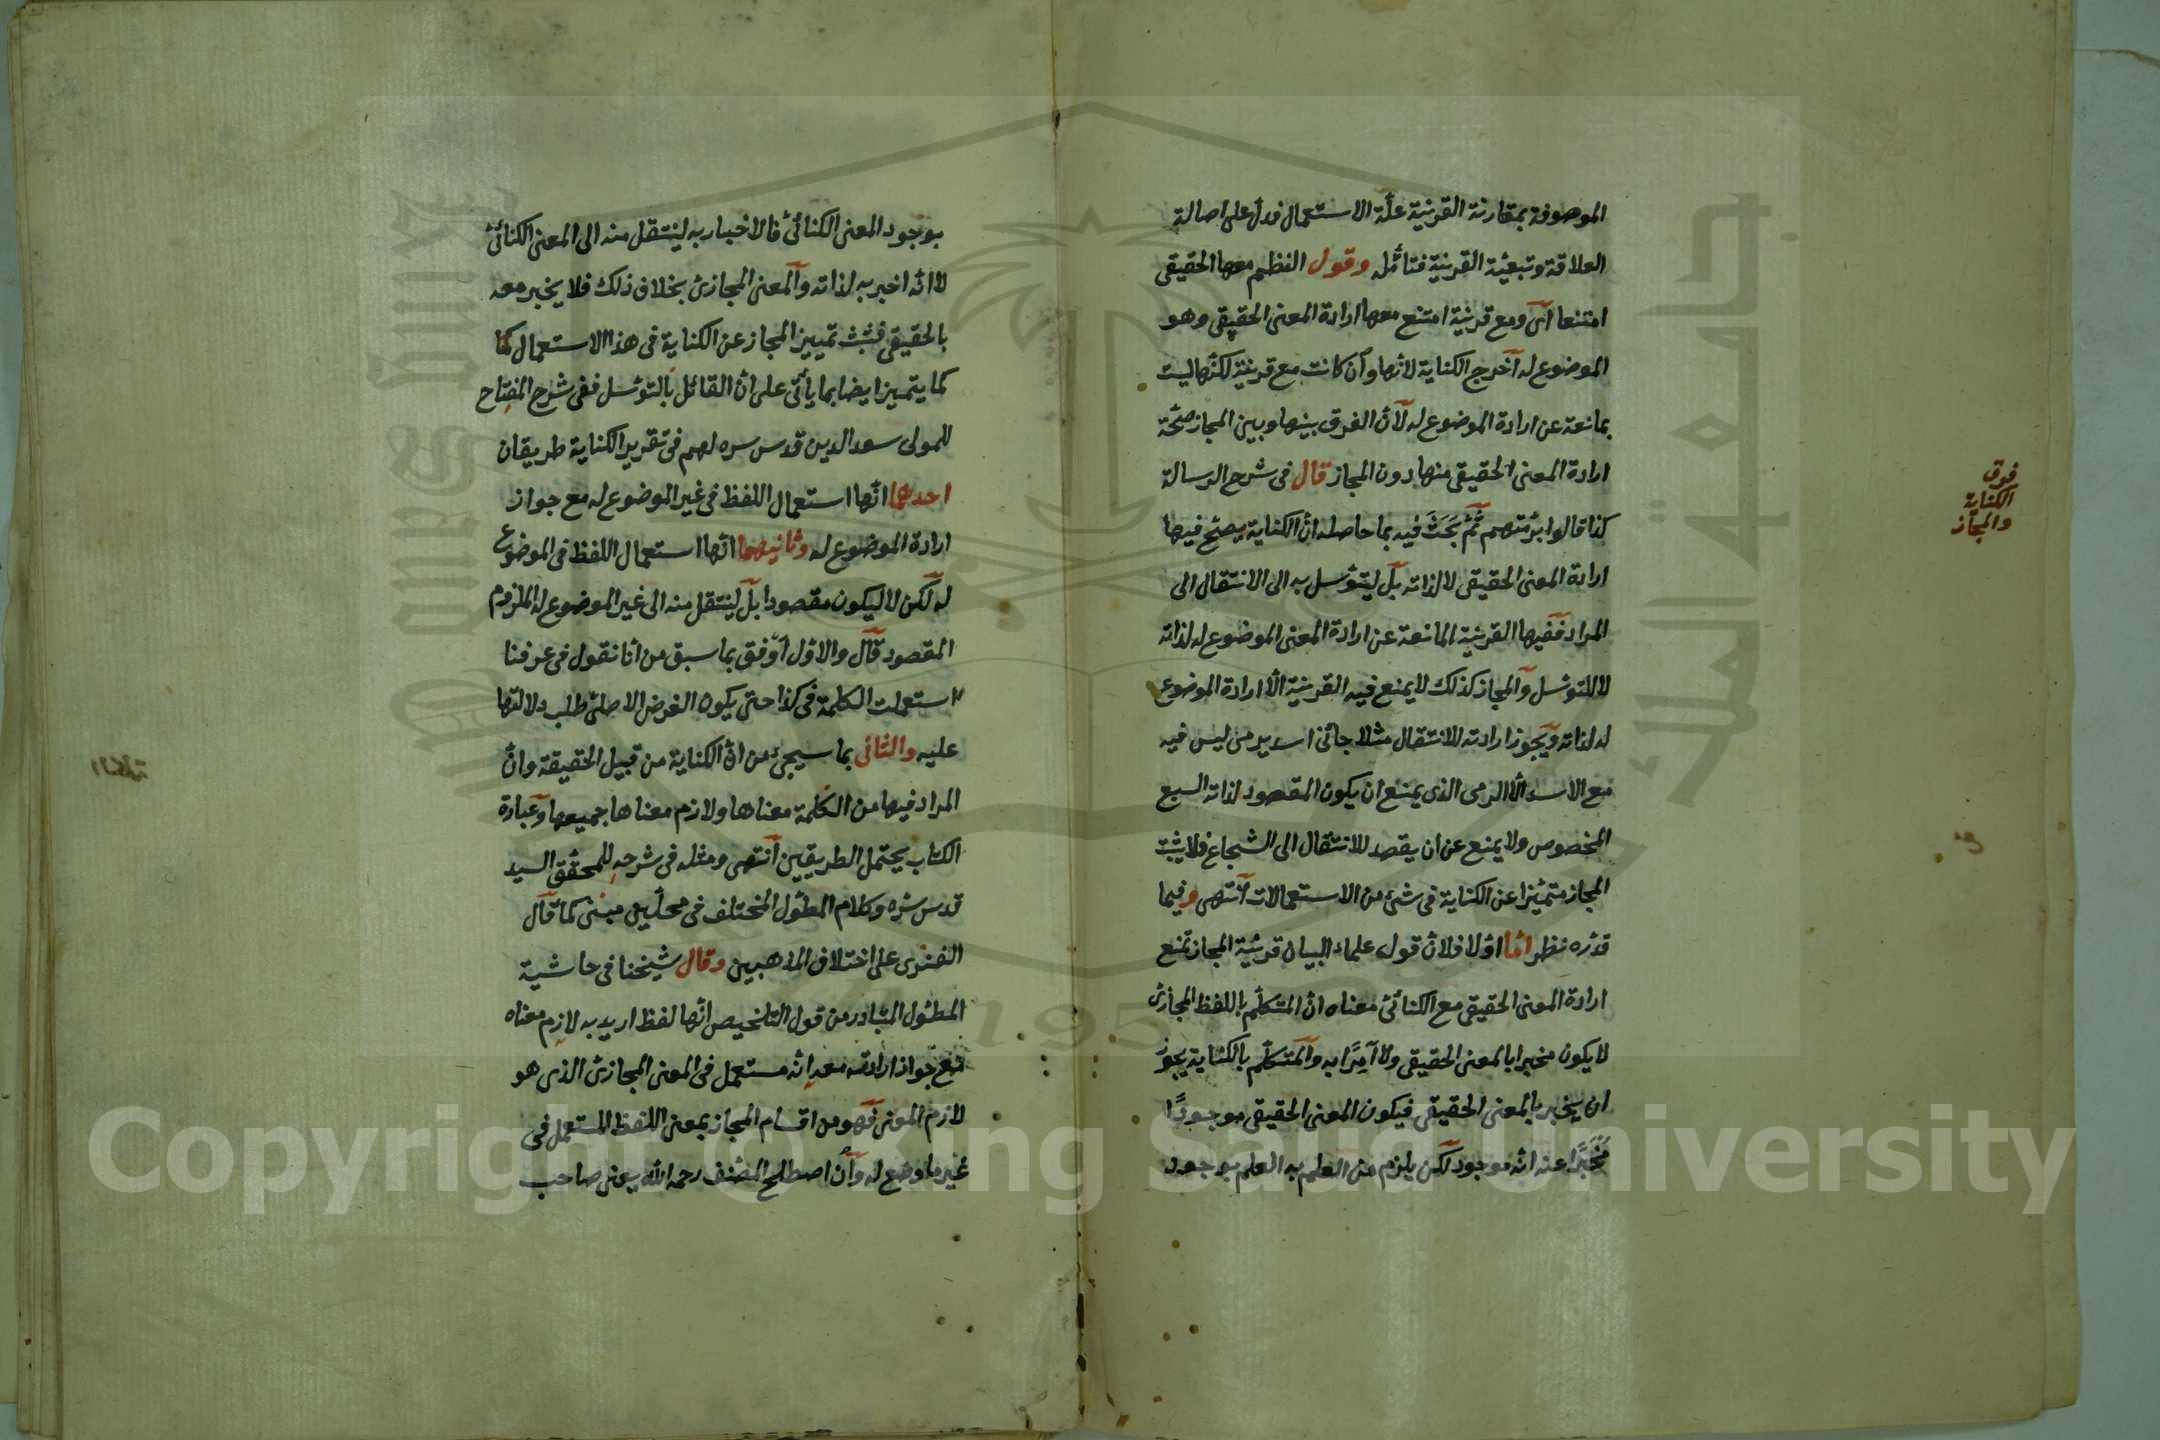 الموصوفة بمقارنة القرينة علّة الاستعمال فدلّ على اصالة
العلاقة وتبعيّة القرينة فتأمّله وقول النظم معها الحقيقي
امتنعا اى ومع قرينة امتنع معها ارادة المعنى الحقيقي وهو
الموضوع له اخرج الكناية لانّها وان كانت مع قرينة لكنّها ليست
بمانعة عن ارادة الموضوع له لانّ الفرق بينها وبين المجاز صحّة
ارادة المعنى الحقيقي منها دون المجاز قال فى شرح الرسالة
كذا قالوا برمّتهم ثُمَّ بَحَثَ فيه بما حاصله انّ الكناية يصحّ فيها
ارادة المعنى الحقيقي لا لذاته بل ليتوسّل به الى الانتقال الى
المراد ففيها القرينة المانعة عن ارادة المعنى الموضوع له لذاته
لا للتوسّل والمجاز كذلك لا يمنع فيه القرينة الّا ارادة الموضوع
له لذاته ويجوز ارادته للانتقال مثلا جائنى اسد يرمى ليس فيه
مع الاسد الّا الرمى الذى يمنع ان يكون المقصود لذاته السبع
المخصوص ولا يمنع عن ان يقصد للانتقال الى الشجاع فلا يثبت
المجاز متميّزا عن الكناية فى شئ من الاستعمالات انتهى وفيما
قدّره نظر امّا اوّلا فلانّ قول علماء البيان قرينة المجاز تمنع
ارادة المعنى الحقيقي مع الكنائىّ معناه انّ المتكلّم باللفظ المجازىّ
لا يكون مخبرا بالمعنى الحقيقي ولا آمِرًا به والمتكلّم بالكناية يجوز
ان يخبر بالمعنى الحقيقي فيكون المعنى الحقيقي موجودًا
مُخْبَرًا عنه انّه موجود لكن يلزم من العلم به العلم بوجود
فرق
الكناية
والمجاز
بوجود المعنى الكنائىّ فالاخبار به لينتقل منه الى المعنى الكنائىّ
لا انّه اخبر به لذاته والمعنى المجازىّ بخلاف ذلك فلا يخبر معه
بالحقيقي فثبت تمييز المجاز عن الكناية فى هذا الاستعمال كما
كما يتميز ايضا بما يأتى على انّ القائل بالتوسّل ففى شرح المفتاح
للمولى سعد الدين قدس سره لهم فى تقرير الكناية طريقان
احدهما انّها استعمال اللفظ فى غير الموضوع له مع جواز
ارادة الموضوع له وثانيهما انّها استعمال اللفظ فى الموضوع
له لكن لا ليكون مقصودا بل لينتقل منه الى غير الموضوع له الملزوم
المقصود قال والاوّل اوفق بما سبق من انا نقول فى عرفنا
استعملت الكلمة فى كذا حتى يكون الغرض الاصلىّ طلب دلالتها
عليه والثانى بما سيجئ من انّ الكناية من قبيل الحقيقة وانّ
المراد فيها من الكلمة معناها ولازم معناها جميعها وعبارة
الكتاب يحتمل الطريقين انتهى ومثله فى شرحِه للمحقّق السيد
قدس سرّه وكلام المطوّل المختلف فى محلّين مبنى كما قال
الفنرى على اختلاف المذهبين وقال شيخنا فى حاشية
المطوّل المتبادر من قول التلخيص انّها لفظ اريد به لازم معناه
مع جواز ارادته معه انّه مستعمل فى المعنى المجازىّ الذى هو
لازم المعنى فهو من اقسام المجاز بمعنى اللفظ المستعمل فى
غير ما وضع له وانّ اصطلح المصنف رحمه الله يعنى صاحب
Copyright © King Saud University